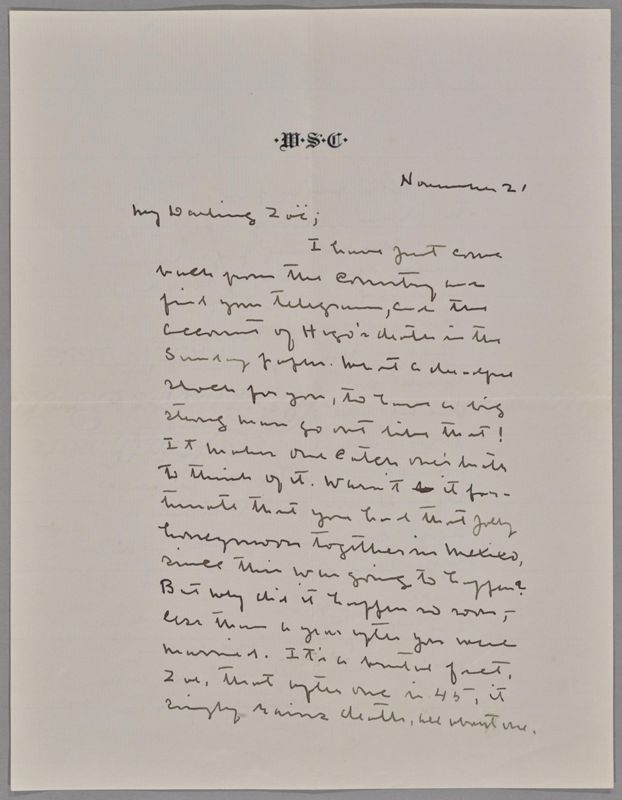 ·W·S·C·
November 21
My Darling Zoë;
I have just come
back from the Country and
find your telegram, and the
account of Hugo's death in the
Sunday paper. What a dreadful
shock for you, to have a big
strong man go out like that!
It makes one catch one's breath
to think of it. Wasn't it for-
tunate that you had that jolly
honeymoon together in Mexico,
since this was going to happen?
But why did it happen so soon,—
less than a year after you were
married. It's a brutal fact,
Zoë, that after one is 45, it
simply rains death, all about one.